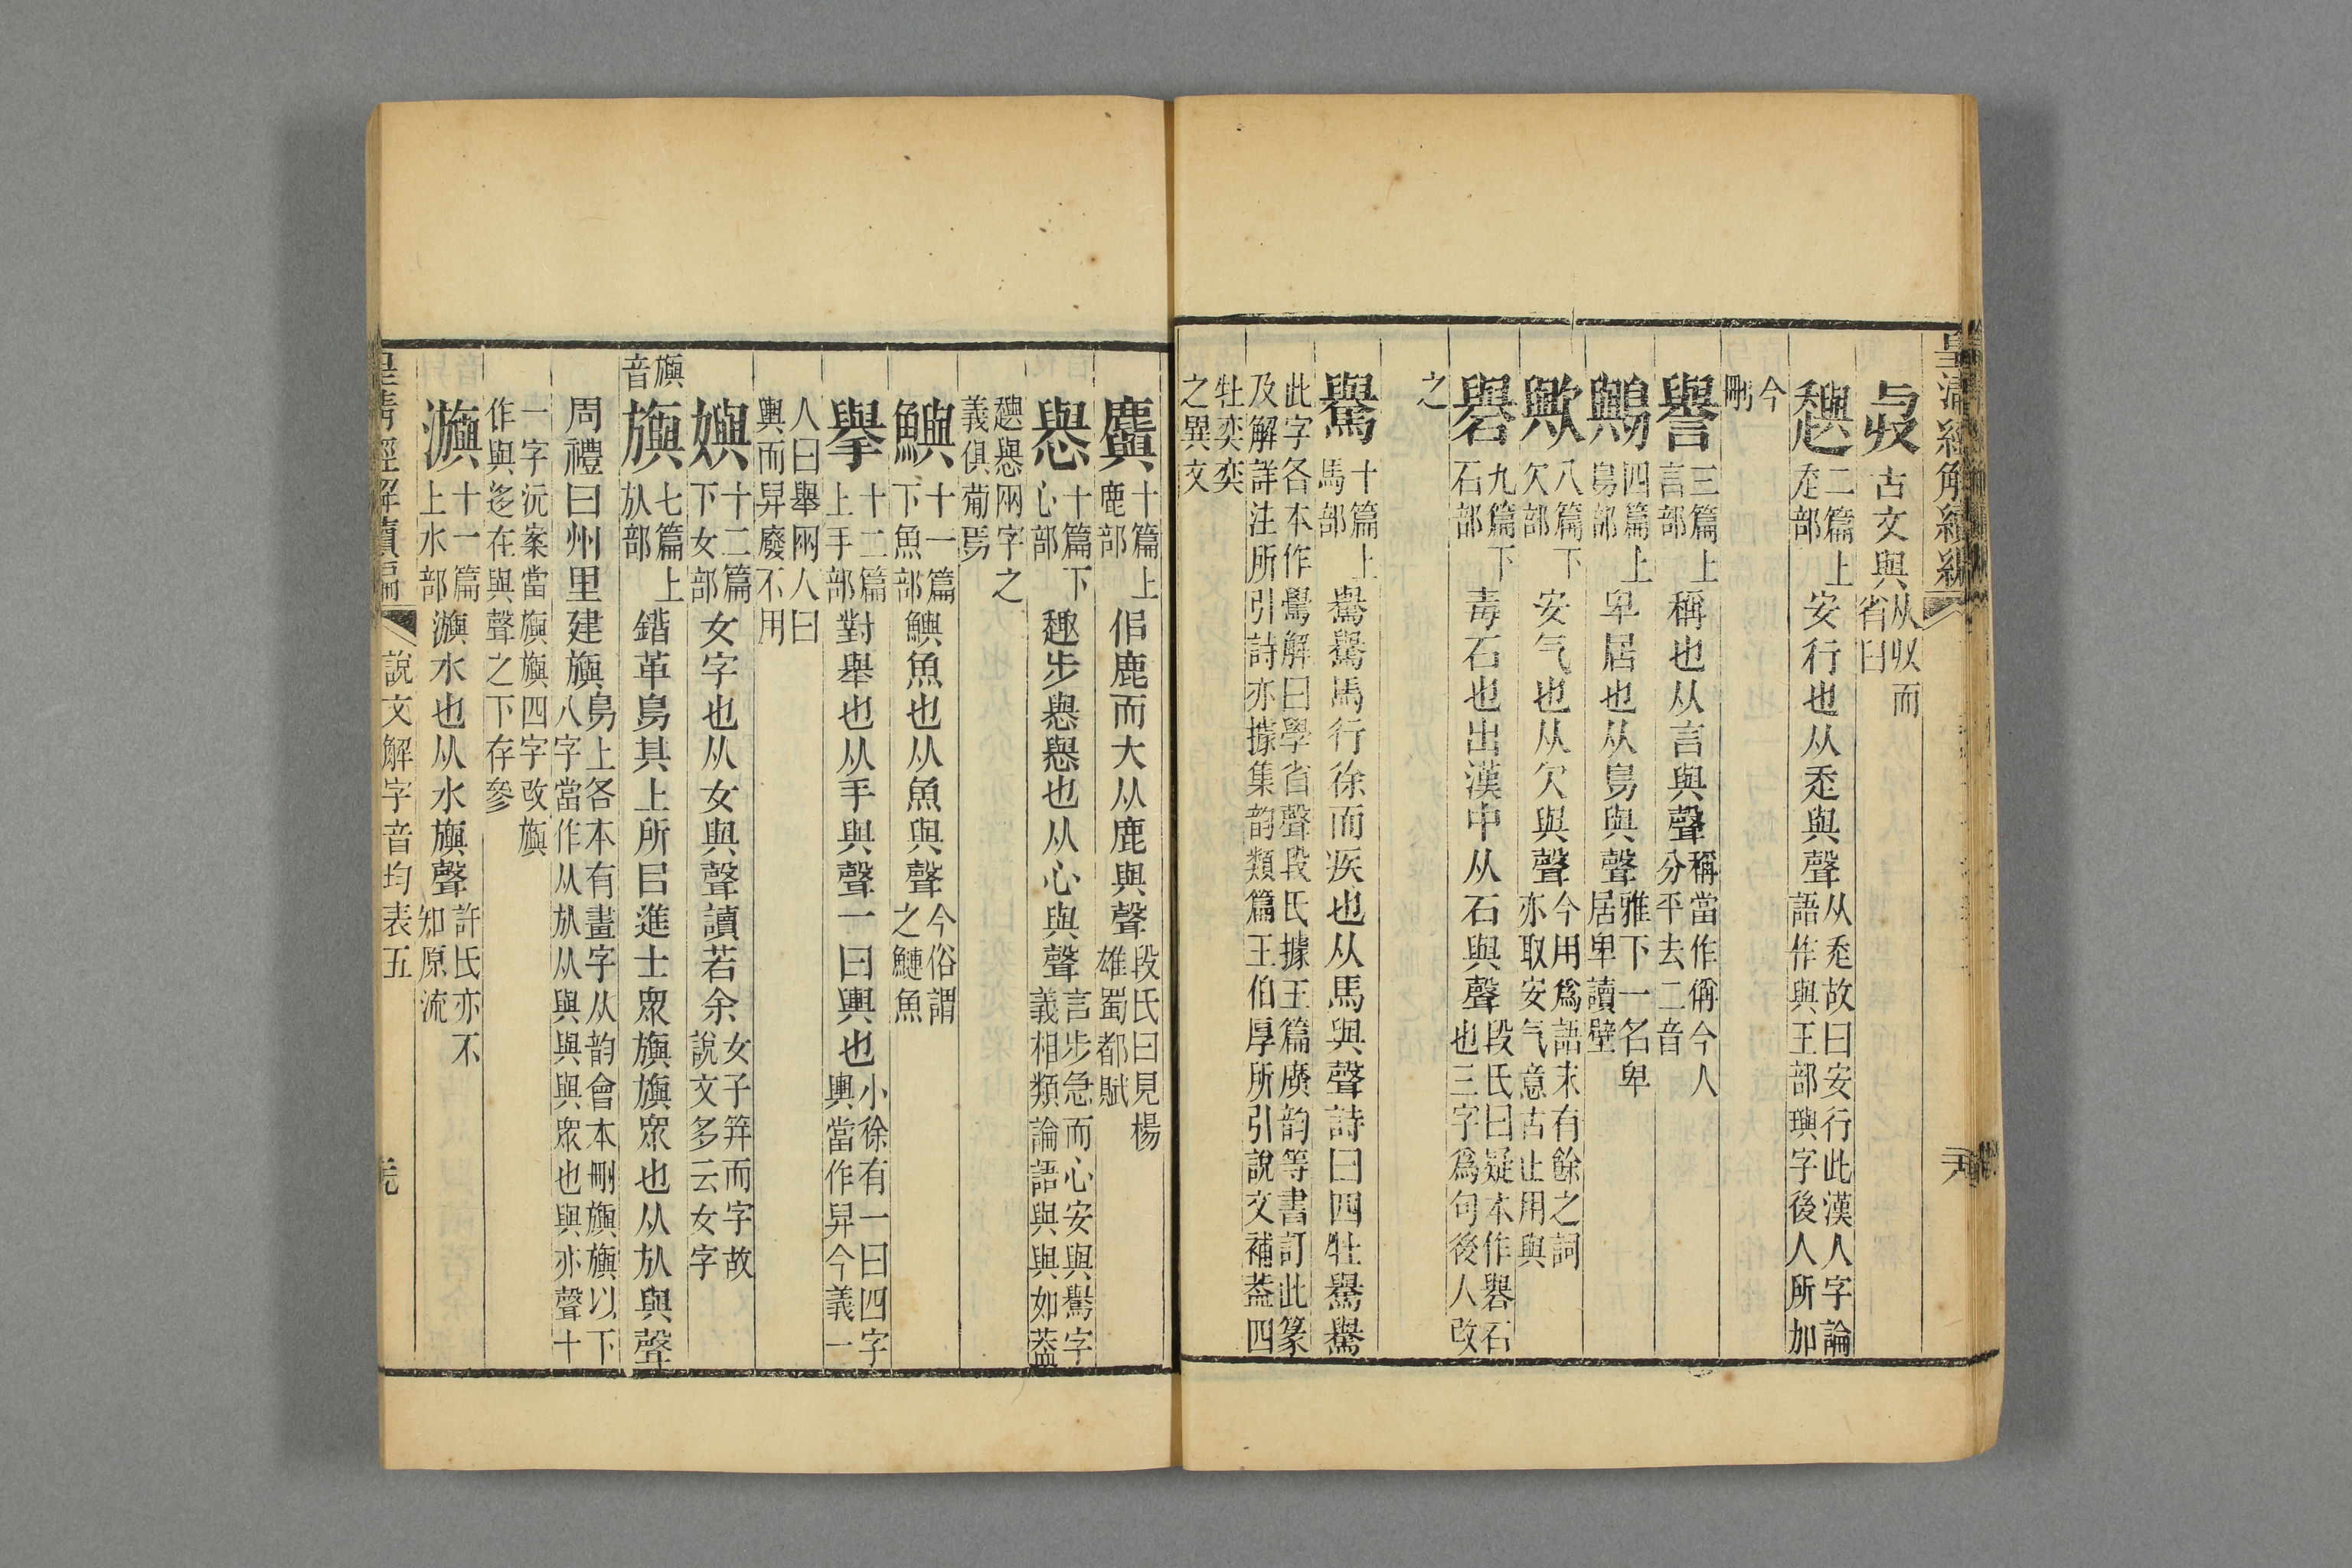 皇清經解續編
𢌱古文與从収而省臼
䠂二篇上辵部安行也从走與聲从走故曰安行此漢人字論語作與王部璵字後人所加
今刪
譽三篇上言部稱也从言與聲稱當作偁今人分平去二音
鸒四篇上鳥部卑居也从鳥與聲雅下一名卑居卑讀壁
歟八篇下欠部安气也从欠與聲今用爲語末有餘之詞亦取安气意古止用與
礜九篇下石部毒石也出漢中从石與聲段氏曰疑本作礜石也三字爲句後人改
之
䮷十篇上馬部䮷䮷馬行徐而疾也从馬與聲詩曰四牡䮷䮷
此字各本作鷽解曰學省聲段氏據玉篇廣韵等書訂此篆及解詳注所引詩亦據集韵類篇王伯厚所引說文補葢四
牡奕奕之異文
䴡十篇上鹿部佀鹿而大从鹿與聲段氏曰見楊雄蜀都賦
懙十篇下心部趣步懙懙也从心與聲言步急而心安與䮷字義相類論語與與如葢
䠂懙兩字之義俱葡焉
鱮十一篇下魚部鱮魚也从魚與聲今俗謂之鰱魚
擧十二篇上手部對舉也从手與聲一曰輿也小徐有一曰四字輿當作舁今義一
人曰舉兩人曰輿而舁廢不用
嬩十二篇下女部女字也从女與聲讀若余女子笄而字故說文多云女字
旟音
旟七篇上㫃部錯革鳥其上所㠯進士衆旟旟衆也从㫃與聲
周禮曰州里建旟鳥上各本有畫字从韵會本刪旟旟以下八字當作从㫃从與與與衆也與亦聲十
一字沅案當旟旟四字改旟作與迻在與聲之下存參
㶛十一篇上水部㶛水也从水旟聲許氏亦不知原流
皇清經解續編 說文解字音均表五